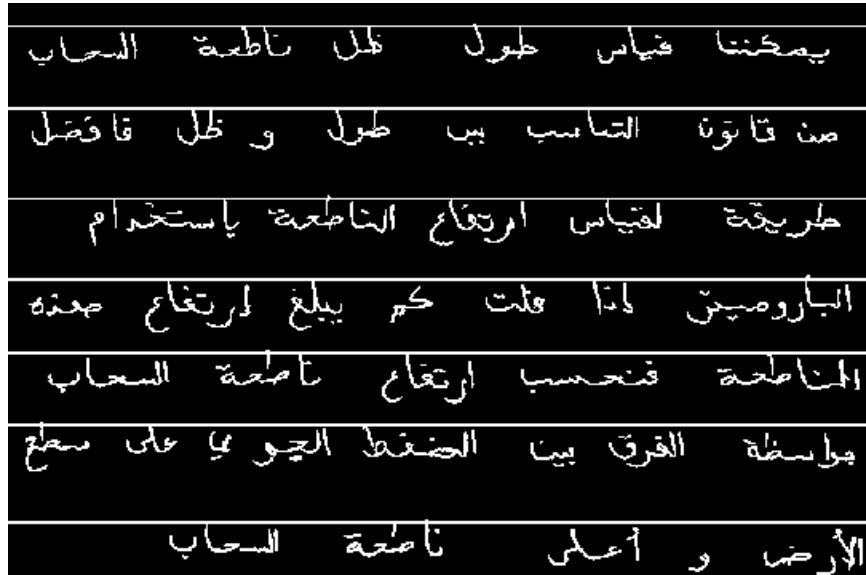 يمكننا قياس طول ظل ناطحة السحاب
من قانون التناسب بين طول و ظل فأفضل
طريقة لقياس ارتفاع الناطحة بإستخدام
البارومیتر إذا قلت كم يبلغ إرتفاع هذه
الناطحة فنحسب ارتفاع ناطحة السحاب
بواسطة الفرق بين الضغط الجوي على سطح
الأرض و أعلى ناطحة السحاب